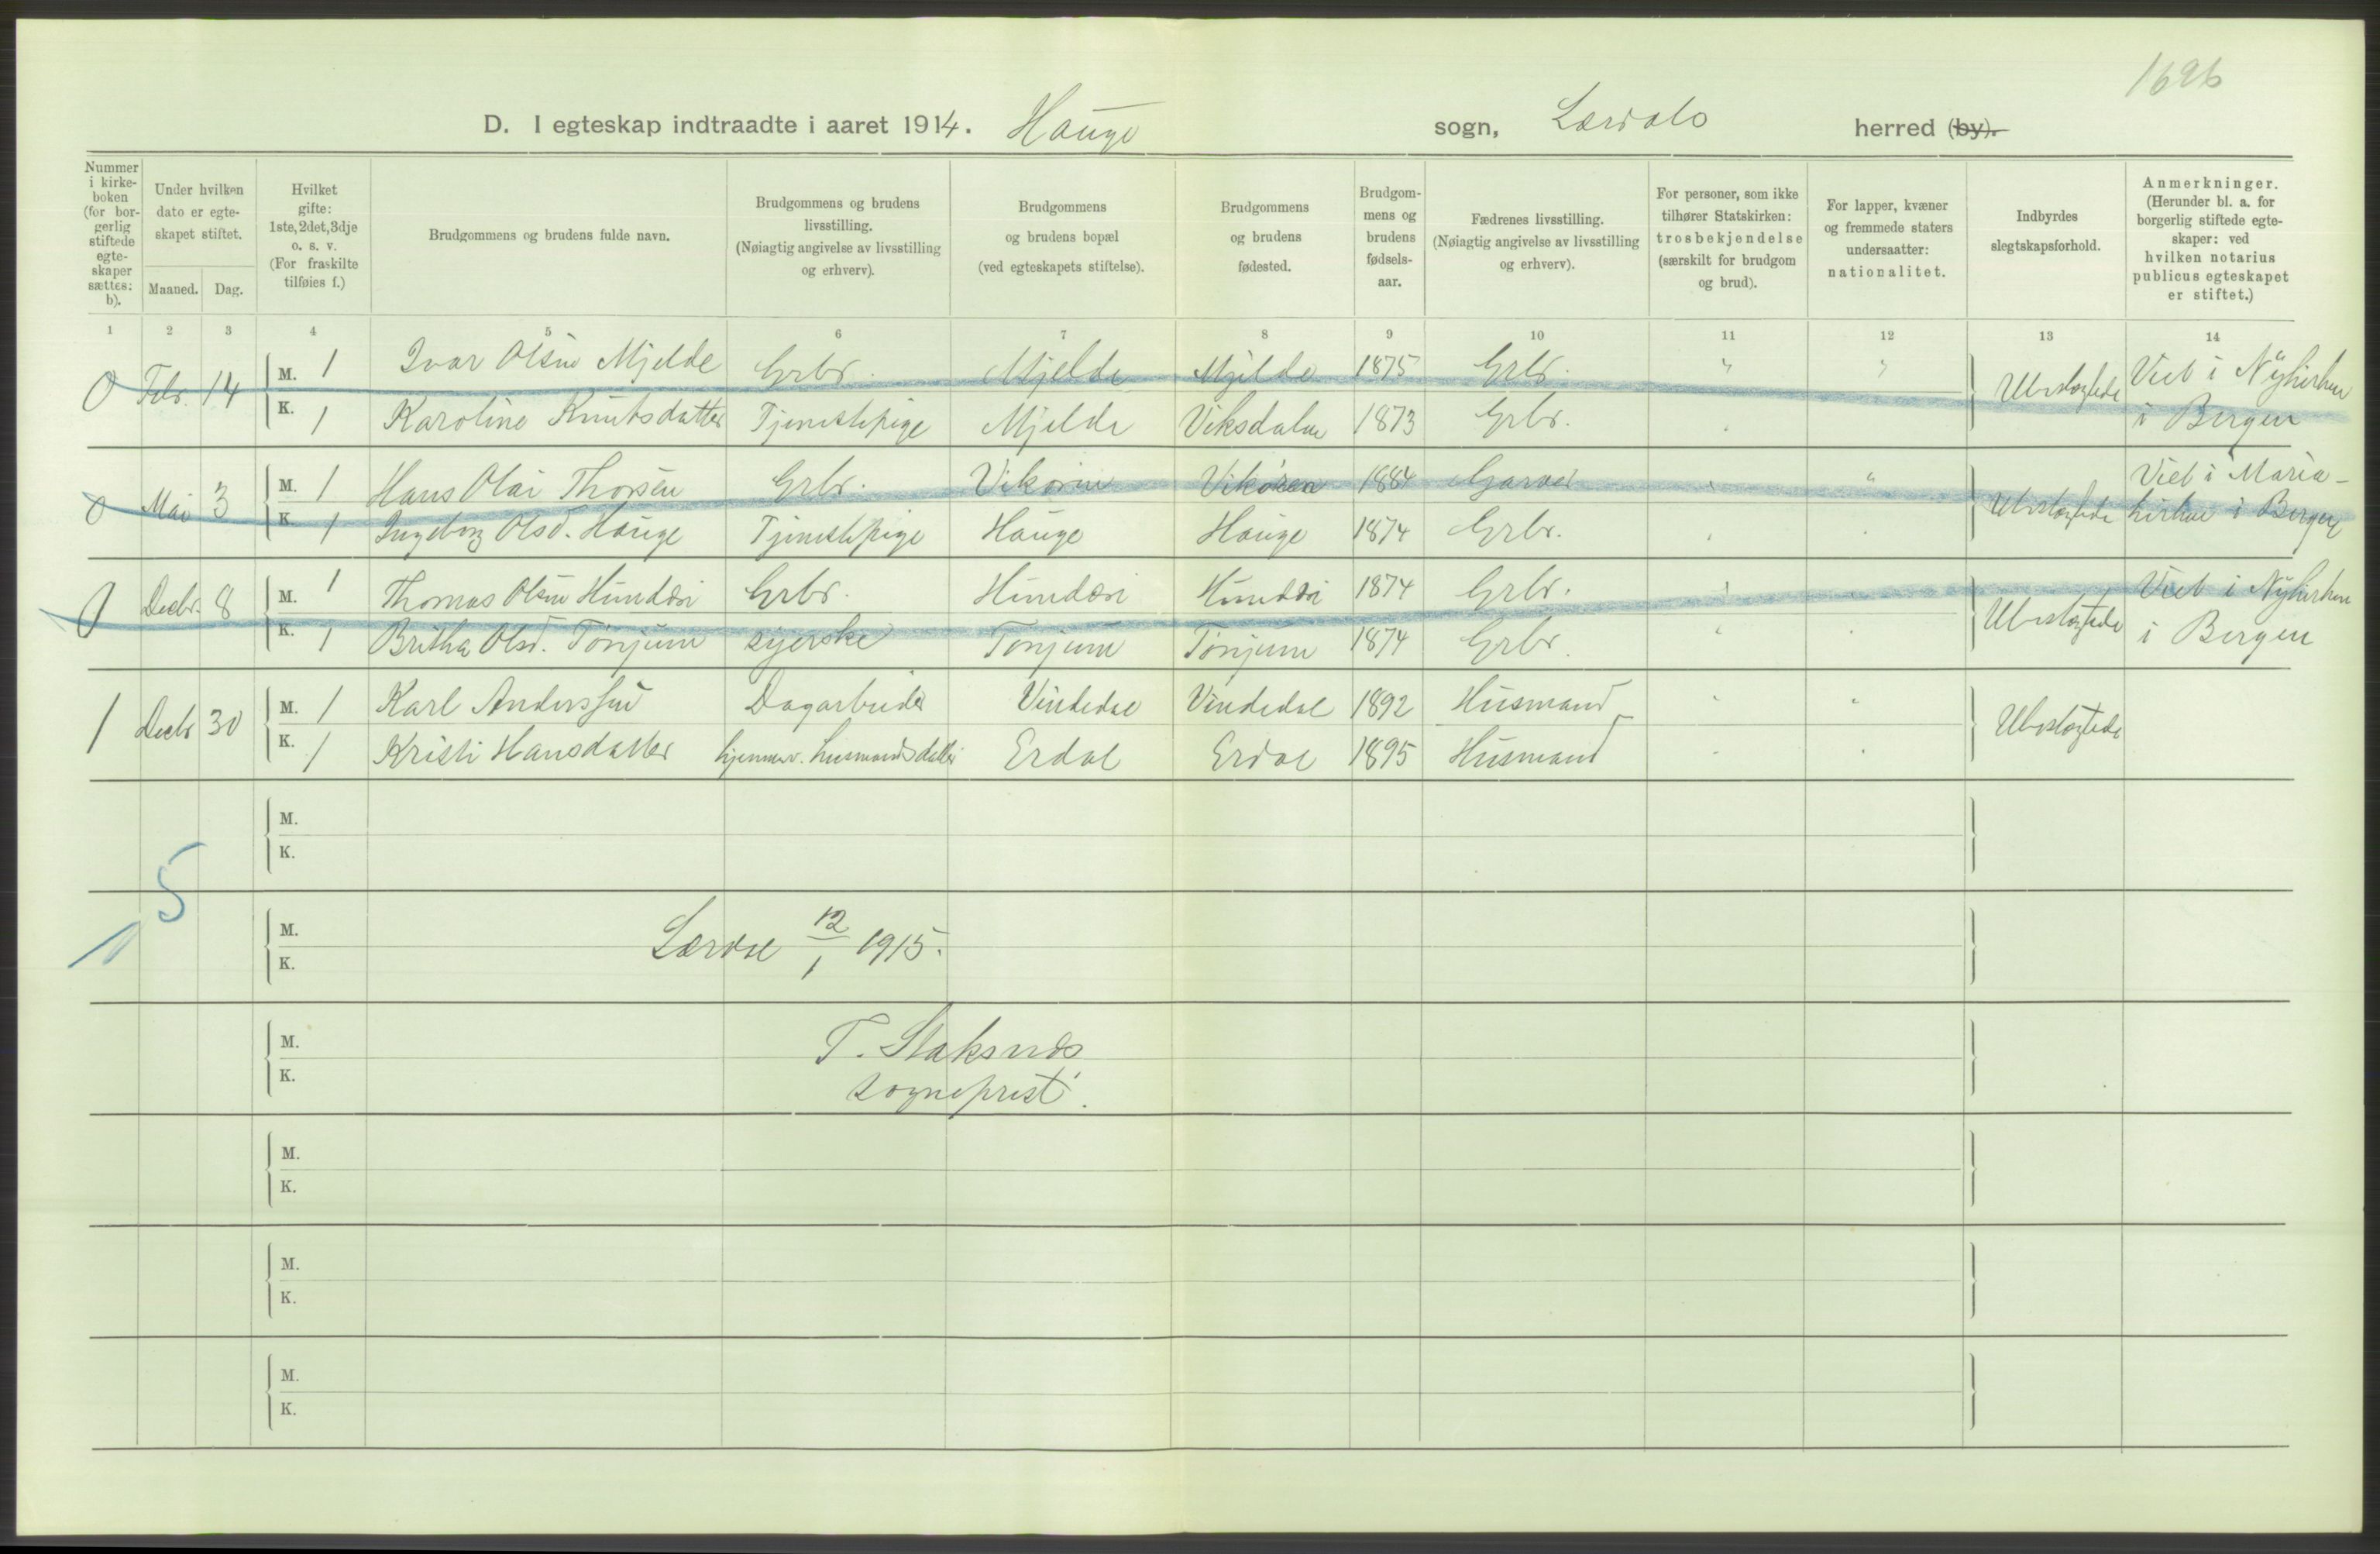 1696
D. I egteskap indtraadte i aaret 1914. Hauge sogn, Lærdals herred (by).
Nummer i kirke-boken (for bor-gerlig stiftede egte-skaper sættes: b).
Under hvilken dato er egte-skapet stiftet.
Maaned. Dag.
Hvilket gifte: 1ste, 2det, 3dje o. s. v. (For fraskilte tilføies f.)
Brudgommens og brudens fulde navn.
Brudgommens og brudens livsstilling. (Nøiagtig angivelse av livsstilling og erhverv).
Brudgommens og brudens bopæl (ved egteskapets stiftelse).
Brudgommens og brudens fødested.
Brudgom-mens og brudens fødsels-aar.
Fædrenes livsstilling. (Nøiagtig angivelse av livsstilling og erhverv).
For personer, som ikke tilhører Statskirken: trosbekjendelse (særskilt for brudgom og brud).
For lapper, kvæner og fremmede staters undersaatter: nationalitet.
Indbyrdes slegtskapsforhold.
Anmerkninger. (Herunder bl. a. for borgerlig stiftede egte-skaper: ved hvilken notarius publicus egteskapet er stiftet.)
1 2 3 4 5 6 7 8 9 10 11 12 13 14
0 Febr. 14 M. 1 Ivar Olsen Mjelde Grbr. Mjelde Mjelde 1875 Grbr. " " Ubeslægtede Viet i Nykirken
K. 1 Karoline Knutsdatter Tjenestepige Mjelde Viksdalen 1873 Grbr. i Bergen
0 Mai 3 M. 1 Hans Olai Thorsen Grbr. Vikøren Vikøren 1884 Garver " " Ubeslægtede Viet i Maria-
K. 1 Ingeborg Olsd. Hauge Tjenestepige Hauge Hauge 1874 Grbr. kirken i Bergen
0 Decbr. 8 M. 1 Thomas Olsen Hunderi Grbr. Hunderi Hunderi 1874 Grbr. Ubeslægtede Viet i Nykirken
K. 1 Britha Olsd. Tønjum syerske Tønjum Tønjum 1874 Grbr. i Bergen
1 Decbr 30 M. 1 Karl Anderssen Dagarbeider Vindedal Vindedal 1892 Husmand " " Ubeslægtede
K. 1 Kristi Hansdatter hjemmev. husmandsdatter Erdal Erdal 1895 Husmand
M.
K.
5
1
M.
K.
Lærdal 12/1 1915.
M.
K.
sogneprest.
M.
K.
M.
K.
M.
K.